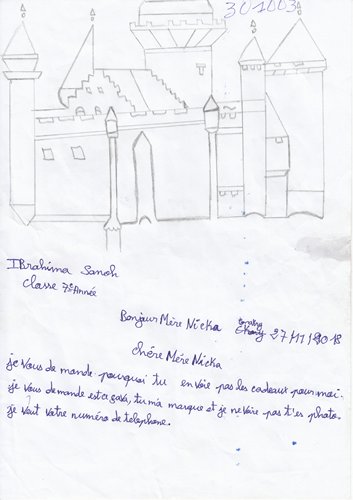 301003
IBrahima Sanoh
Classe 7e Année
Bonjour Mère Nicka
27/11/2018
Chére Mère Nicka
je vous de mande pourquoi tu en voie pas les cadeaux pour moi.
je vous demande est ce gava, tu m'a marque et je ne voie pas t'es photo.
je veut votre numéro de telephone.